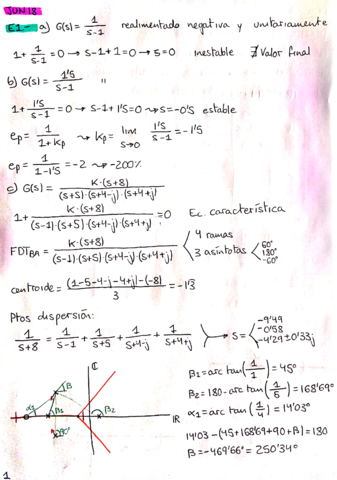 JUN18
E1- a) G(s) = 1/(s-1) realimentado negativa y unitariamente
1 + 1/(s-1) = 0 → s-1+1=0 → s=0 inestable ∄ Valor final
b) G(s) = 1'5/(s-1) "
1 + 1'5/(s-1) = 0 → s-1+1'5=0 → s=-0'5 estable
ep = 1/(1+Kp) → Kp = lim s→0 1'5/(s-1) = -1'5
ep = 1/(1-1'5) = -2 → -200%
c) G(s) = K·(s+8)/((s+5)·(s+4-j)·(s+4+j))
1 + K·(s+8)/((s-1)·(s+5)·(s+4-j)·(s+4+j)) = 0 Ec. característica
FDTBA = K·(s+8)/((s-1)(s+5)(s+4-j)(s+4+j)) 4 ramas
3 asíntotas 60° 180° -60°
centroide = ((1-5-4-j-4+j)-(-8))/3 = -1'3
Ptos dispersión:
1/(s+8) = 1/(s-1) + 1/(s+5) + 1/(s+4-j) + 1/(s+4+j) → s = -9'49
-0'58
-4'29±0'33j
ℂ
β
α1
β1
β2
90°
IR
β1 = arc tan(1/1) = 45°
β2 = 180 - arc tan(1/5) = 168'69°
α1 = arc tan(1/4) = 14'03°
14'03 - (45+168'69+90+β) = 180
β = -469'66° = 250'34°
1